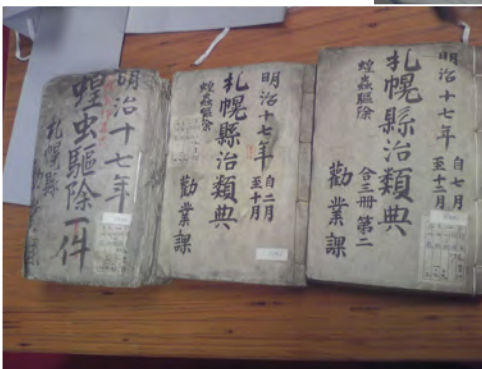 明治十七年
蝗虫驅除一件
札幌縣
明治十七年
自二月
至十月
札幌縣治類典
蝗蟲驅除
勸業課
明治十七年
自七月
至十二月
札幌縣治類典
蝗蟲驅除
合三冊第二
勸業課